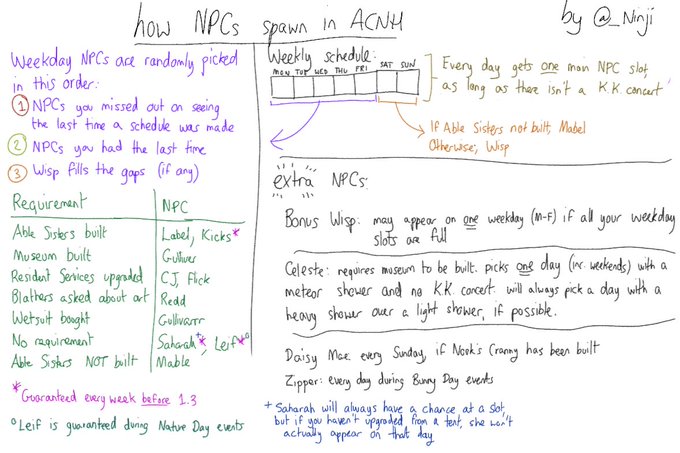 how NPCs spawn in ACNH
by @_Ninji
Weekday NPCs are randomly picked
in this order:
1 NPCs you missed out on seeing
the last time a schedule was made
2 NPCs you had the last time
3 Wisp fills the gaps (if any)
Requirement NPC
Able Sisters built Label, Kicks*
Museum built Gulliver
Resident Services upgraded CJ, Flick
Blathers asked about art Redd
Wetsuit bought Gullivarrr
No requirement Saharah+*, Leif*o
Able Sisters NOT built Mable
* Guaranteed every week before 1.3
o Leif is guaranteed during Nature Day events
Weekly schedule:
MON TUE WED THU FRI SAT SUN
Every day gets one main NPC slot,
as long as there isn't a K.K. concert
If Able Sisters not built, Mabel
Otherwise, Wisp
extra NPCs:
Bonus Wisp: may appear on one weekday (M-F) if all your weekday
slots are full
Celeste: requires museum to be built. picks one day (inc. weekends) with a
meteor shower and no K.K. concert. will always pick a day with a
heavy shower over a light shower, if possible.
Daisy Mae: every Sunday, if Nook's Cranny has been built
Zipper: every day during Bunny Day events
+ Saharah will always have a chance at a slot,
but if you haven't upgraded from a tent, she won't
actually appear on that day